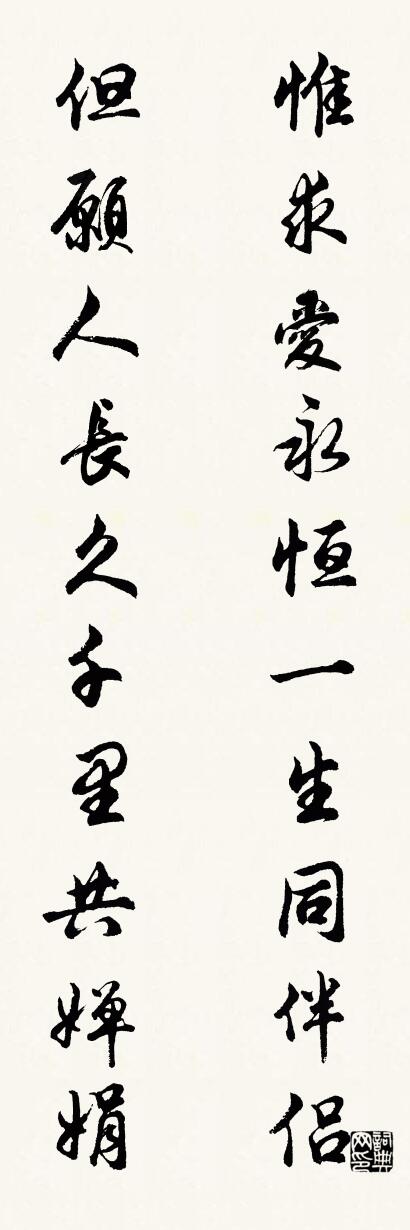 惟求愛永恒一生同伴侣
但願人長久千里共嬋娟
詞典網印